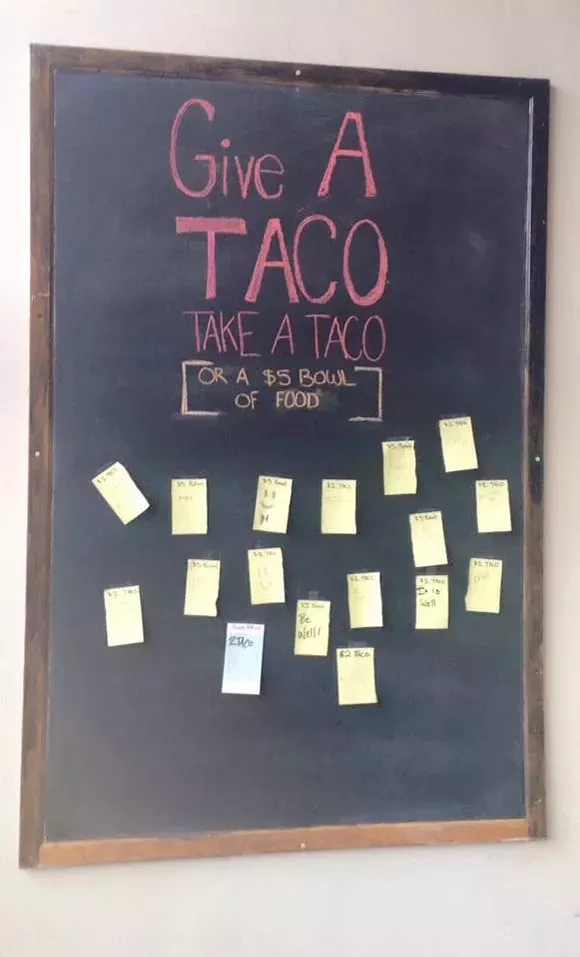 Give A
TACO
TAKE A TACO
[OR A $5 BOWL
OF FOOD]
$2 TACO
$5 Bowl
$2 TACO
$5 Bowl
$5 Bowl
$2 TACO
$2 TACO
$5 Bowl
$5 Bowl
$2 TACO
$2 TACO
$2 TACO
It is
Well
$2 TACO
$2 TACO
$5 Bowl
Be
Well!
TACO
$2 TACO